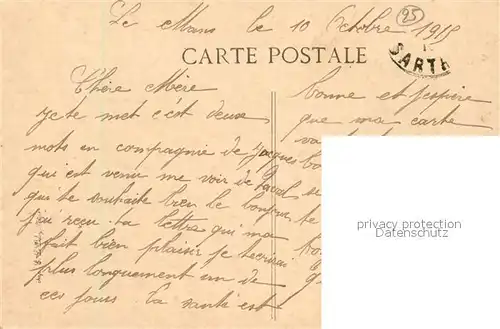 Le Mans le 10 Octobre 1915
95
CARTE POSTALE
SARTH
Chère Mère
Je te met c'est deux
mots en compagnie de Jacques
qui est venu me voir de Laval
qui te souhaite bien le bonjour
j'ai reçu ta lettre qui ma
fait bien plaisir je t'ecrirai
plus longuement un de
ces jours. Ta santé est
bonne et j'espère
que ma carte
privacy protection
Datenschutz